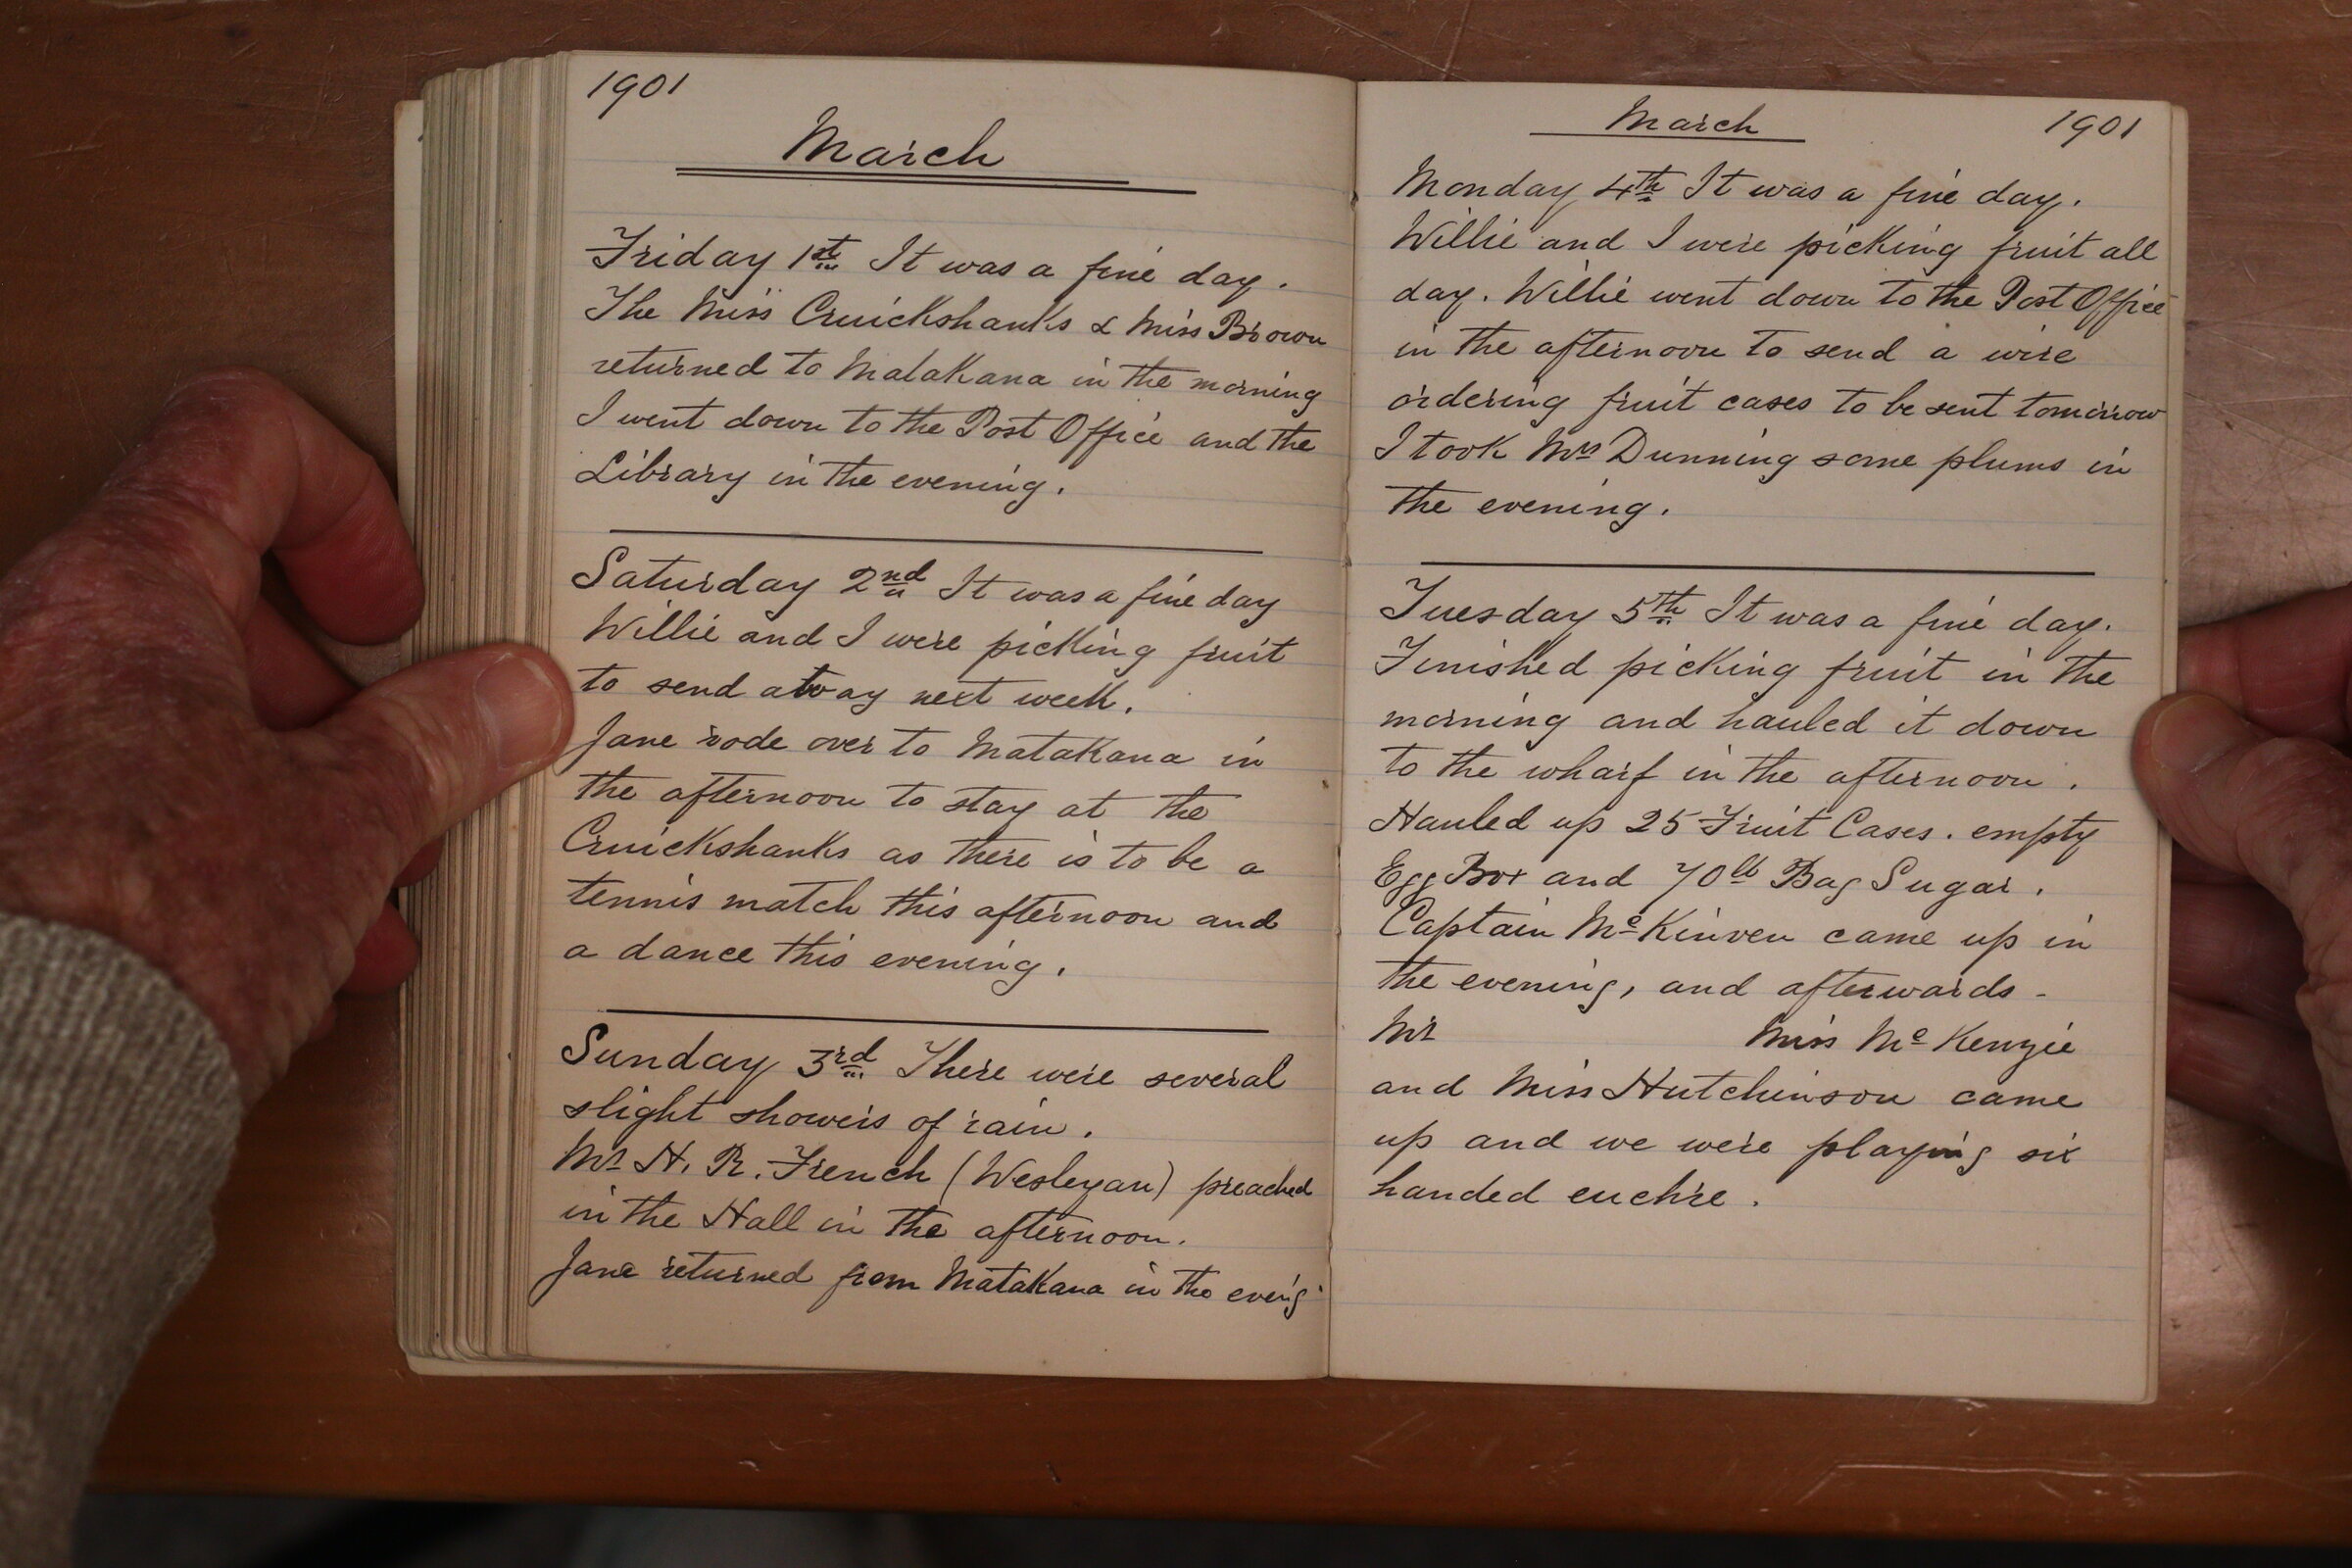 1901
March
Friday 1st It was a fine day.
The Miss Cruickshanks & Miss Brown
returned to Matakana in the morning
I went down to the Post Office and the
Library in the evening.
Saturday 2nd It was a fine day
Willie and I were picking fruit
to send away next week.
Jane rode over to Matakana in
the afternoon to stay at the
Cruickshanks as there is to be a
tennis match this afternoon and
a dance this evening.
Sunday 3rd There were several
slight showers of rain.
Mr H. R. French (Wesleyan) preached
in the Hall in the afternoon.
Jane returned from Matakana in the eveng
March 1901
Monday 4th It was a fine day.
Willie and I were picking fruit all
day. Willie went down to the Post Office
in the afternoon to send a wire
ordering fruit cases to be sent tomorrow
I took Mrs Dunning some plums in
the evening.
Tuesday 5th It was a fine day.
Finished picking fruit in the
morning and hauled it down
to the wharf in the afternoon.
Hauled up 25 Fruit Cases. empty
Egg Box and 70lb Bag Sugar.
Captain McKinven came up in
the evening, and afterwards -
Mr Miss McKenzie
and Miss Hutchinson came
up and we were playing six
handed euchre.